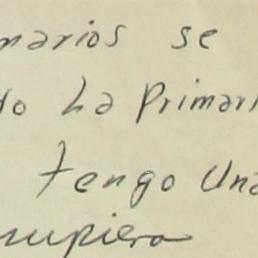 marios se
do La Primari
tengo Una
cupiera